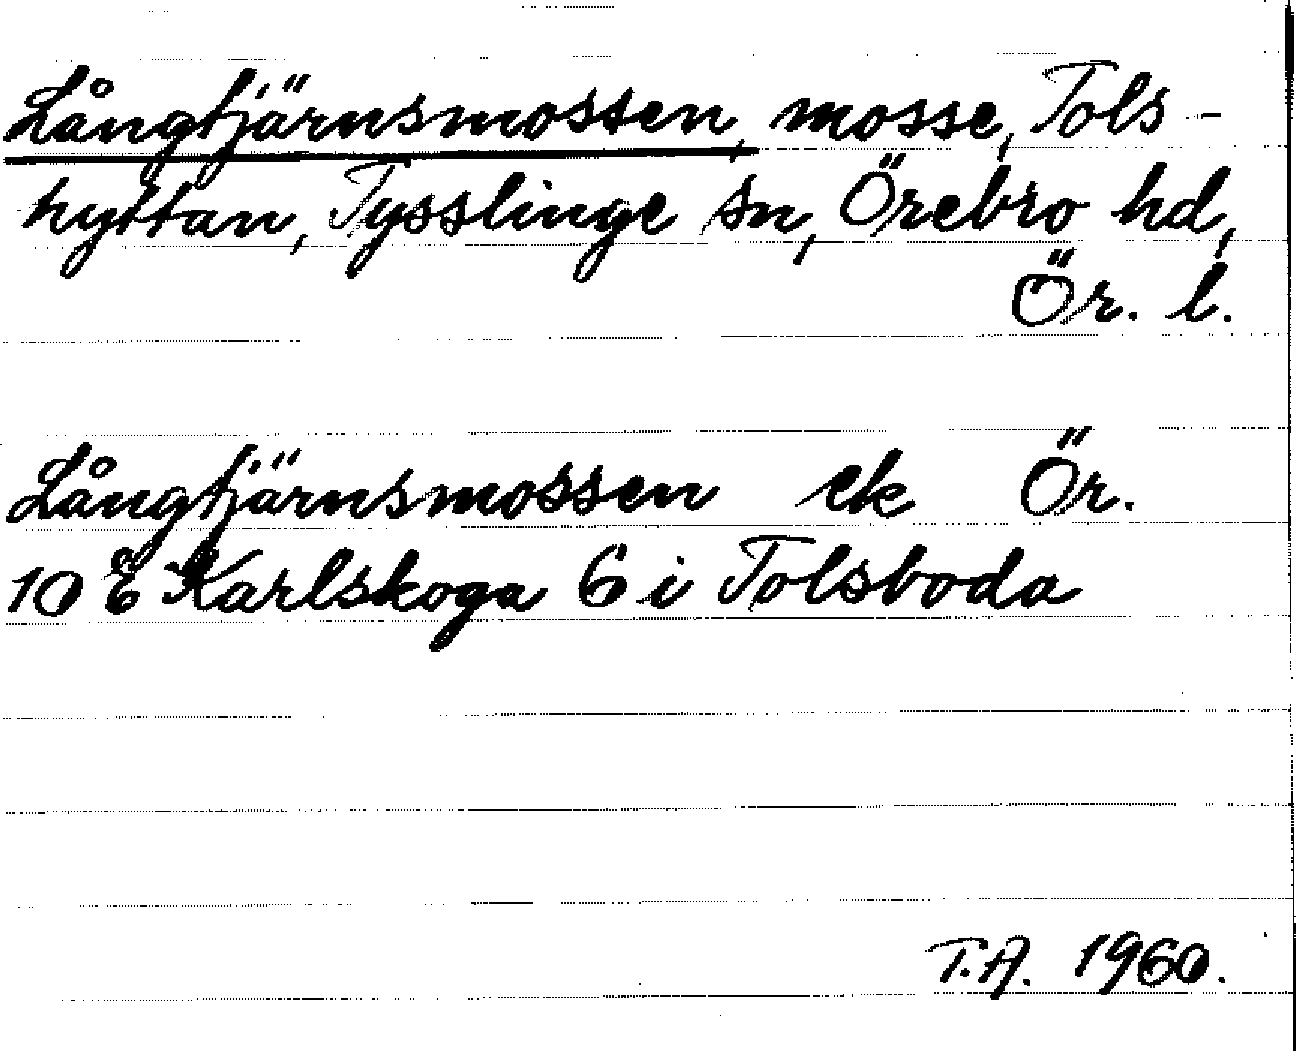 Långtjärnsmossen, mosse, Tols-
hyttan, Tysslinge sn, Örebro hd,
Ör. l.
Långtjärnsmossen ek Ör.
10 E Karlskoga 6 i Tolsboda
T.A. 1960.